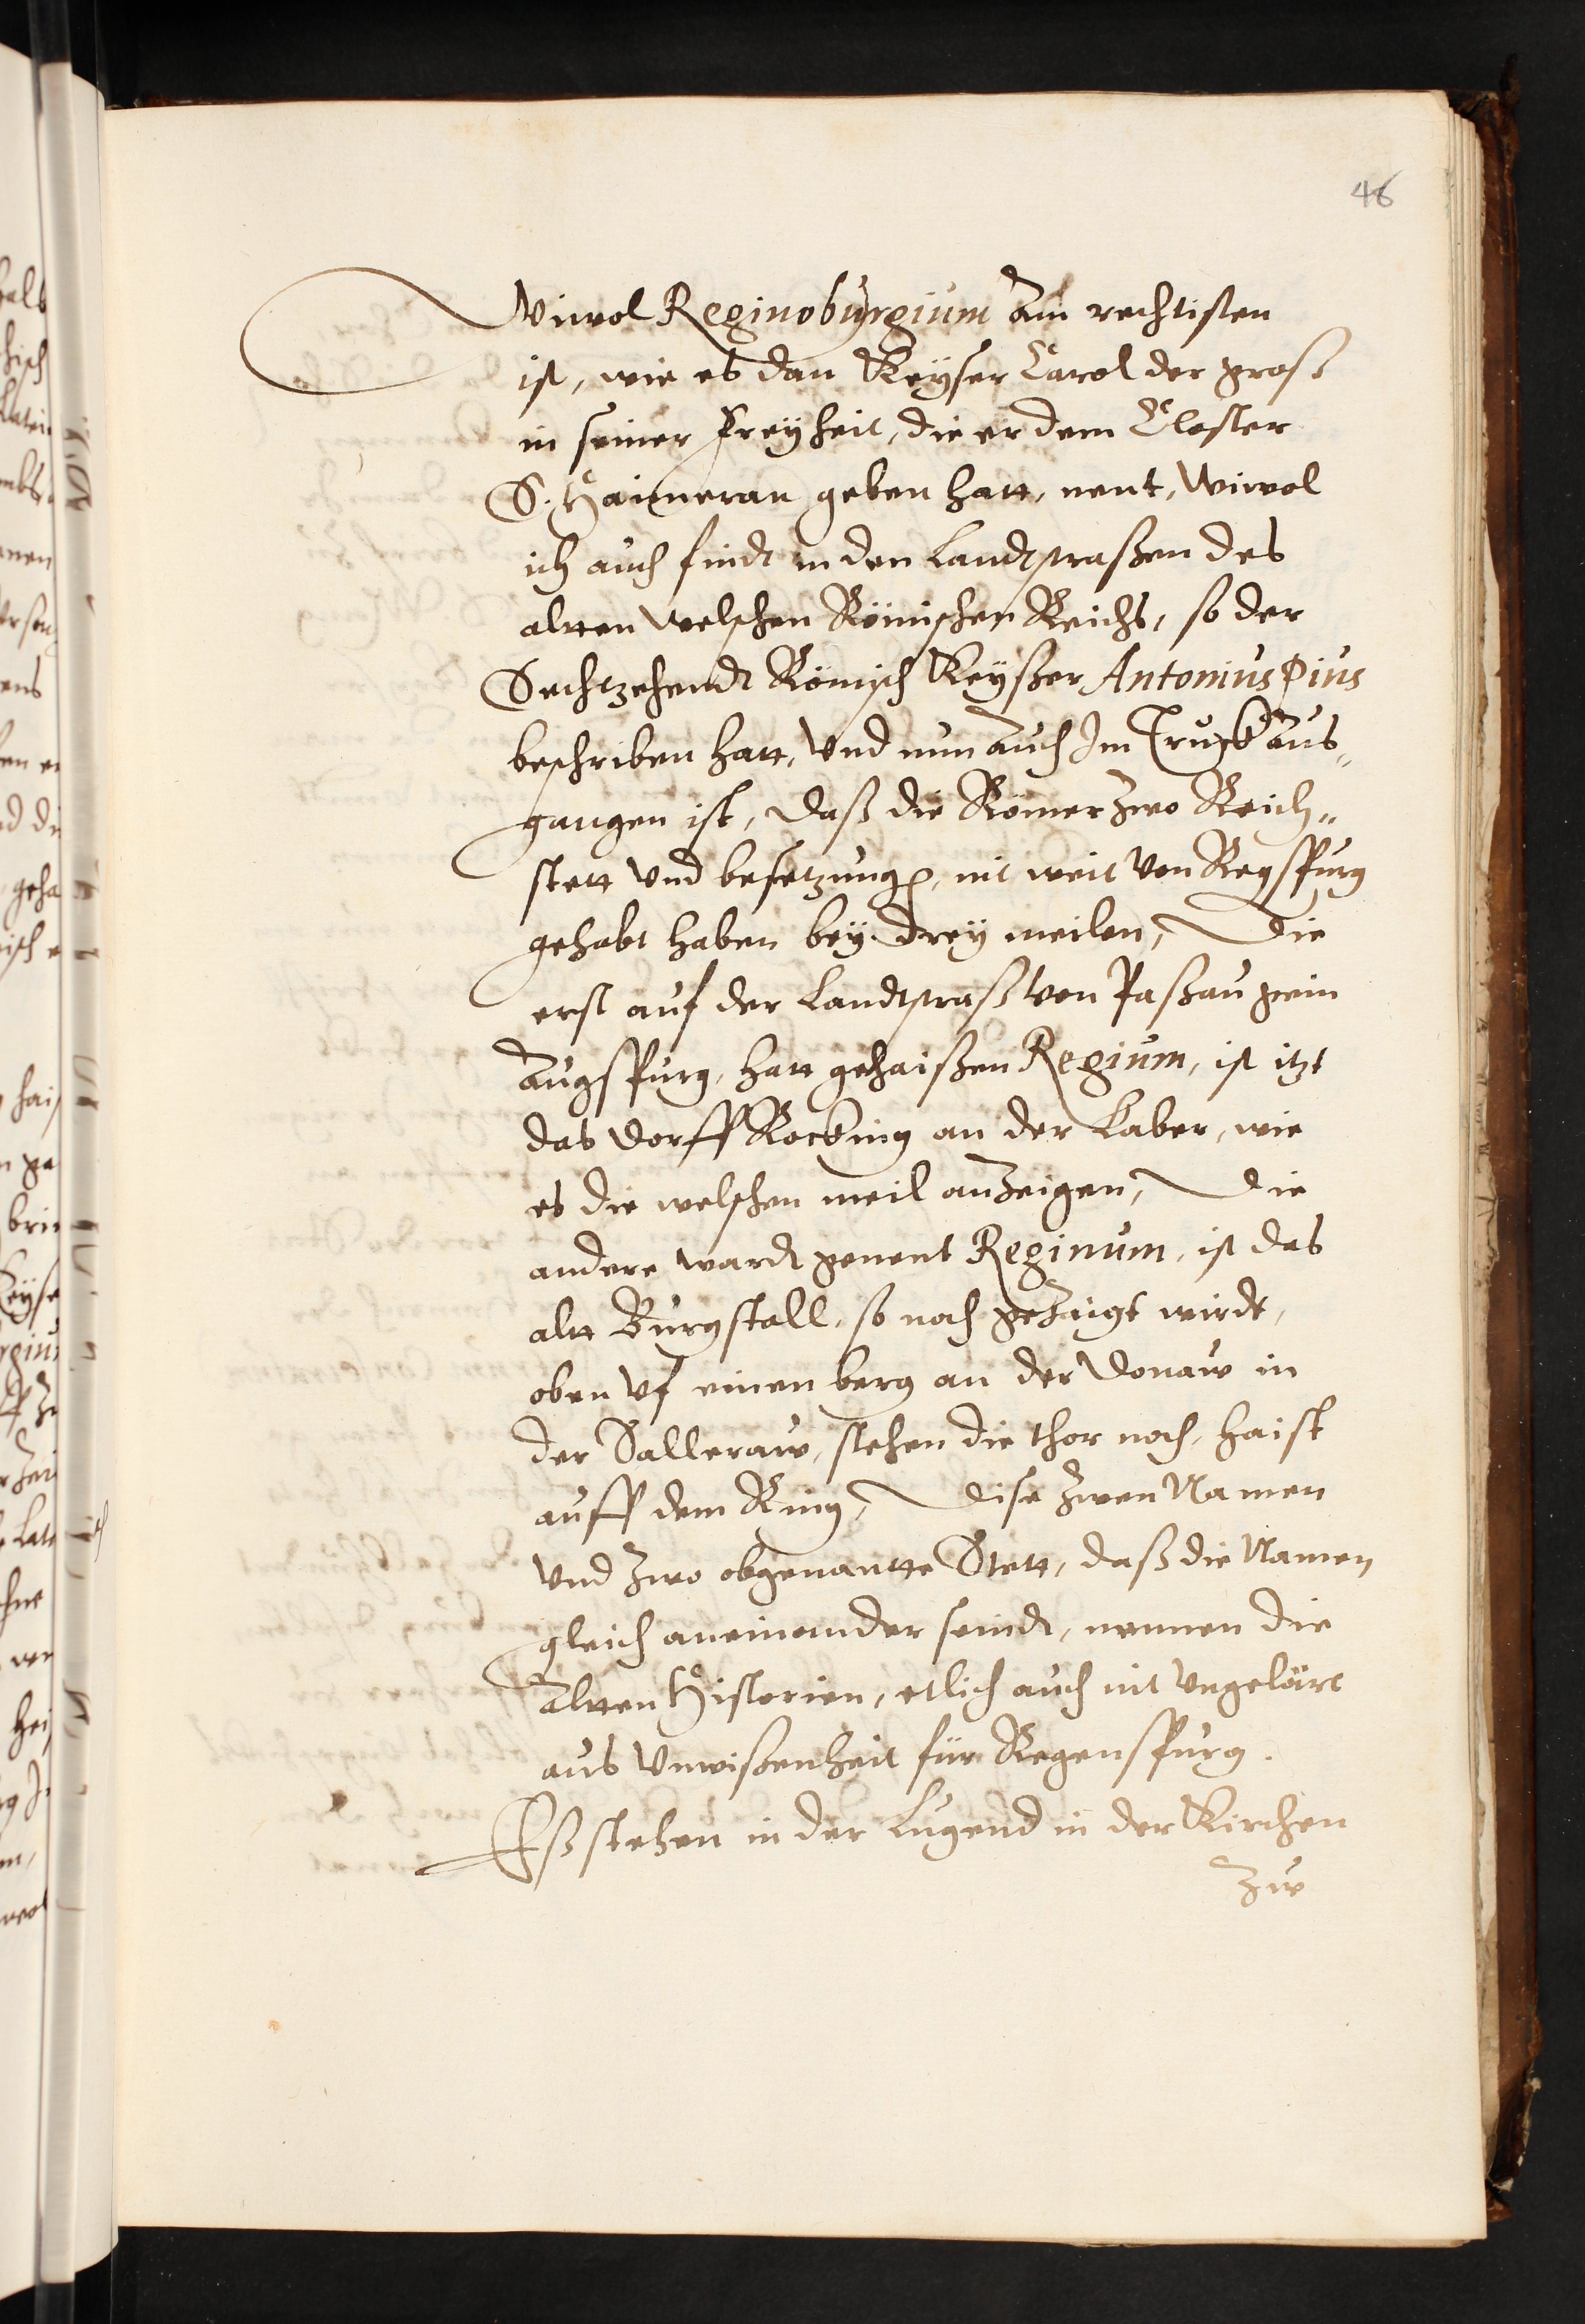 46
Wiwol Reginoburgium Am rechtisten
ist, wie es dan Keyser Carol der groß
in seiner Freyheit, die er dem Closter
S. Haimeran geben hatt, nent, Wiwol
ich auch findt in den Landtstraßen des
altten welschen Römischen Reichs, so der
Sechtzehendt Römisch Keyßer Antonius Pius
beschriben hatt, Vnd nun Auch Im Truckh Aus„
gangen ist, Daß die Römer zwo Reich„
stett Vnd besetzung, nit weit Von Regspurg
gehabt haben bey drey meilen, Die
erst auf der Landtstraß Von Paßau gein
Augspurg, hatt gehaißen Regium, ist itzt
das Dorff Rocking an der Laber, wie
es die welschen meil anzeigen, Die
andere wardt genent Reginum, ist das
altt Burgstall, so noch gezaigt wirdt,
oben Vf einen berg an der Donaw in
der Salleraw, stehen die thor noch, haist
auff dem Ring, Dise zwen Namen
Vnd zwo obgenantte Stett, Daß die Namen
gleich aneinander seindt, nennen die
Altten Historien, etlich auch nit Vngelärt
aus Vnwißenheit für Regenspurg.
Eß stehen in der Lugend in der Kirchen
Zw